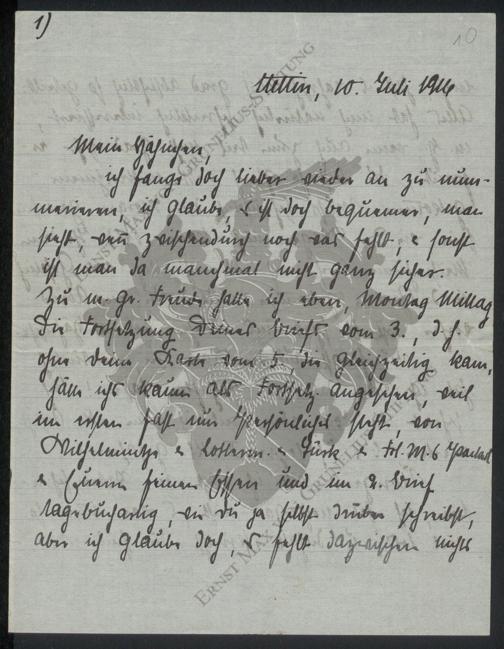 1)
10
Stettin, 10. Juli 1916
Mein Hähnchen,
ich fange doch lieber wieder an zu num-
merieren, ich glaube, s ist doch bequemer, man
sieht, wenn zwischendurch noch was fehlt, & sonst
ist man da manchmal nicht ganz sicher.
Zu m. gr. Freude hatte ich eben, Montag Mittag
die Fortsetzung Deines Briefs vom 3., d. h.
ohne deine Karte vom 5. die gleichzeitig kam,
hätte ichs kaum als Fortsetz. angesehen, weil
im ersten fast nur Persönliches steht, von
& Frl. M.s
& Eurem feinen Essen und im 2. Brief
tagebuchartig, wie du ja selbst drüber schreibst,
aber ich glaube doch, s fehlt dazwischen nichts
ERNST MATTHIAS GRÜNELIUS-STIFTUNG